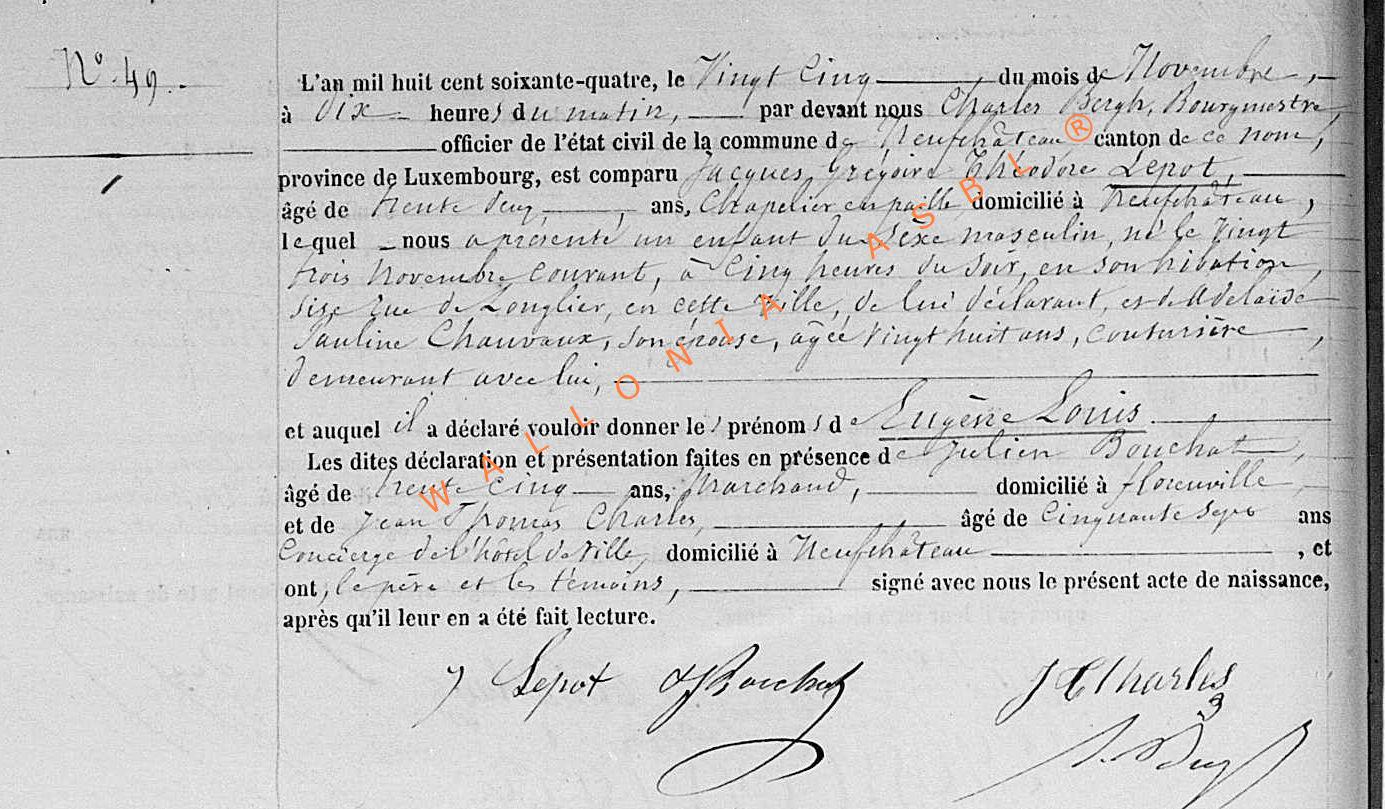 N° 49.
L'an mil huit cent soixante-quatre, le Vingt Cinq du mois de Novembre,
à Dix heures du matin, par devant nous Charles Bergh, Bourgmestre,
officier de l'état civil de la commune de Neufchâteau canton de ce nom,
province de Luxembourg, est comparu Jacques Grégoire Théodore Lepot,
âgé de trente deux, ans, Chapelier en paille domicilié à Neufchâteau,
lequel nous a présenté un enfant du sexe masculin, né le Vingt
trois Novembre courant, à Cinq heures du soir, en son hibation,
sise rue de Longlier, en cette Ville, de lui déclarant, et de Adelaïde
Pauline Chauvaux, son épouse, agée Vingt huit ans, couturière,
demeurant avec lui,
et auquel il a déclaré vouloir donner les prénoms de Eugène Louis
Les dites déclaration et présentation faites en présence de Julien Bouchat,
âgé de trente cinq ans, Marchand, domicilié à florenville,
et de Jean Thomas Charles, âgé de Cinquante sept ans
Concierge de l'hôtel de Ville, domicilié à Neufchâteau , et
ont, le père et les témoins, signé avec nous le présent acte de naissance,
après qu'il leur en a été fait lecture.
J Lepot J Bouchat J T Charles
WALLONIA ASBL ®